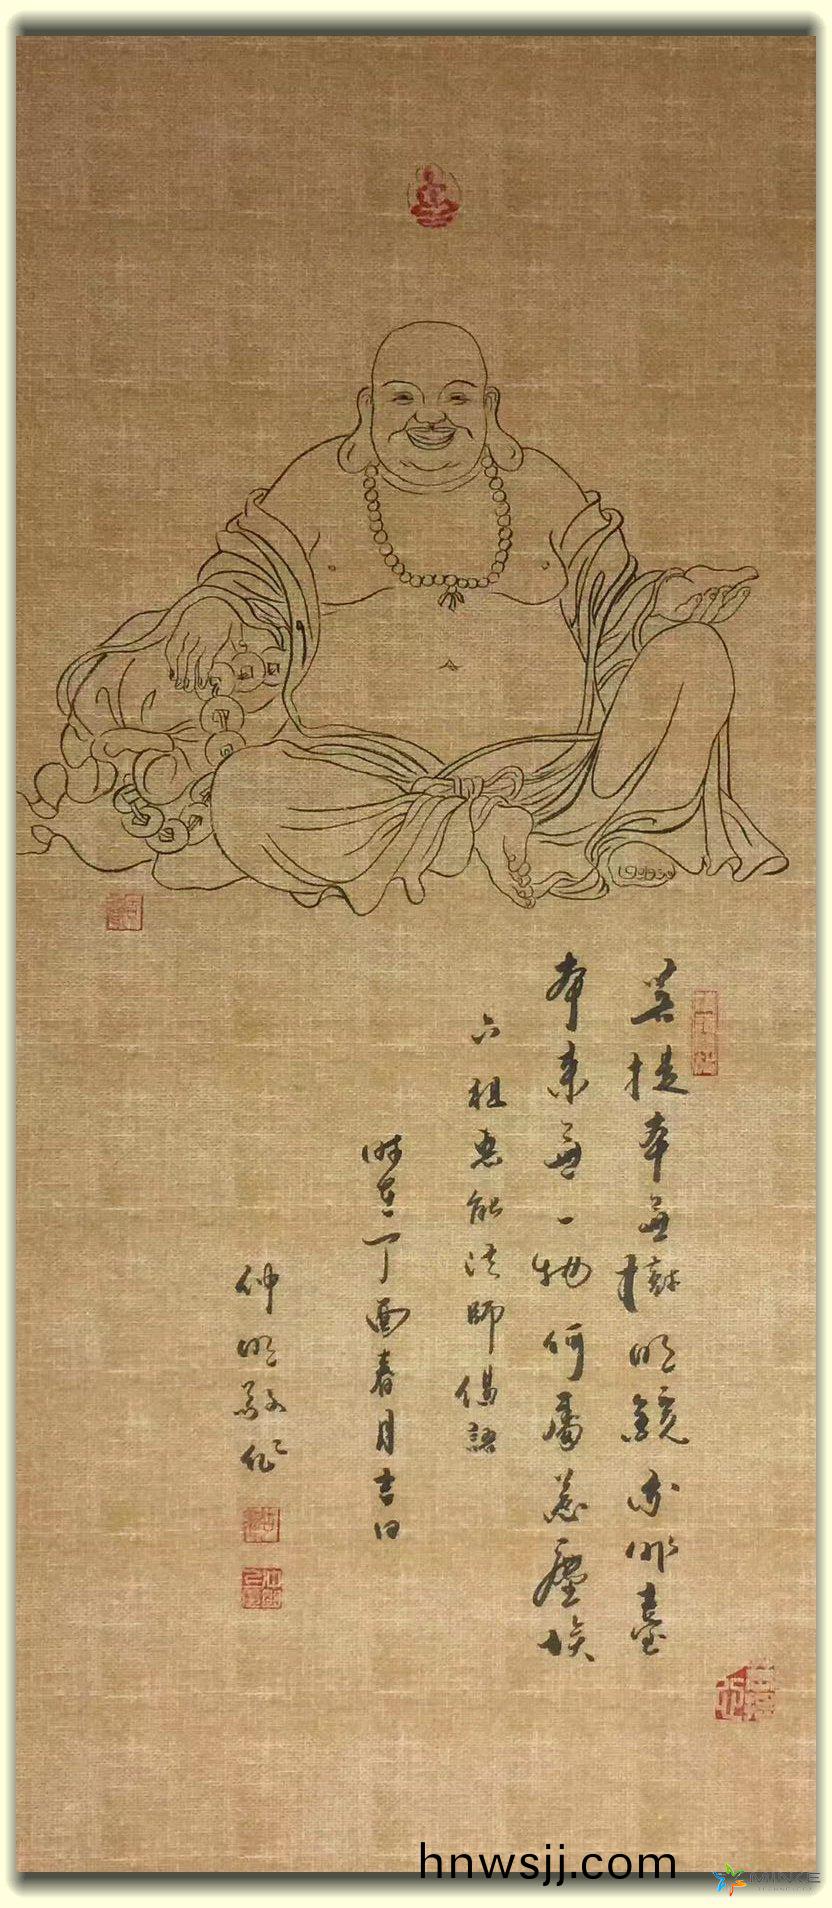 菩提本無樹明鏡亦非臺
本来無一物何處惹塵埃
六祖惠能法師偈語
時在丁酉春月吉日
仲明敬作
hnwsjj.com